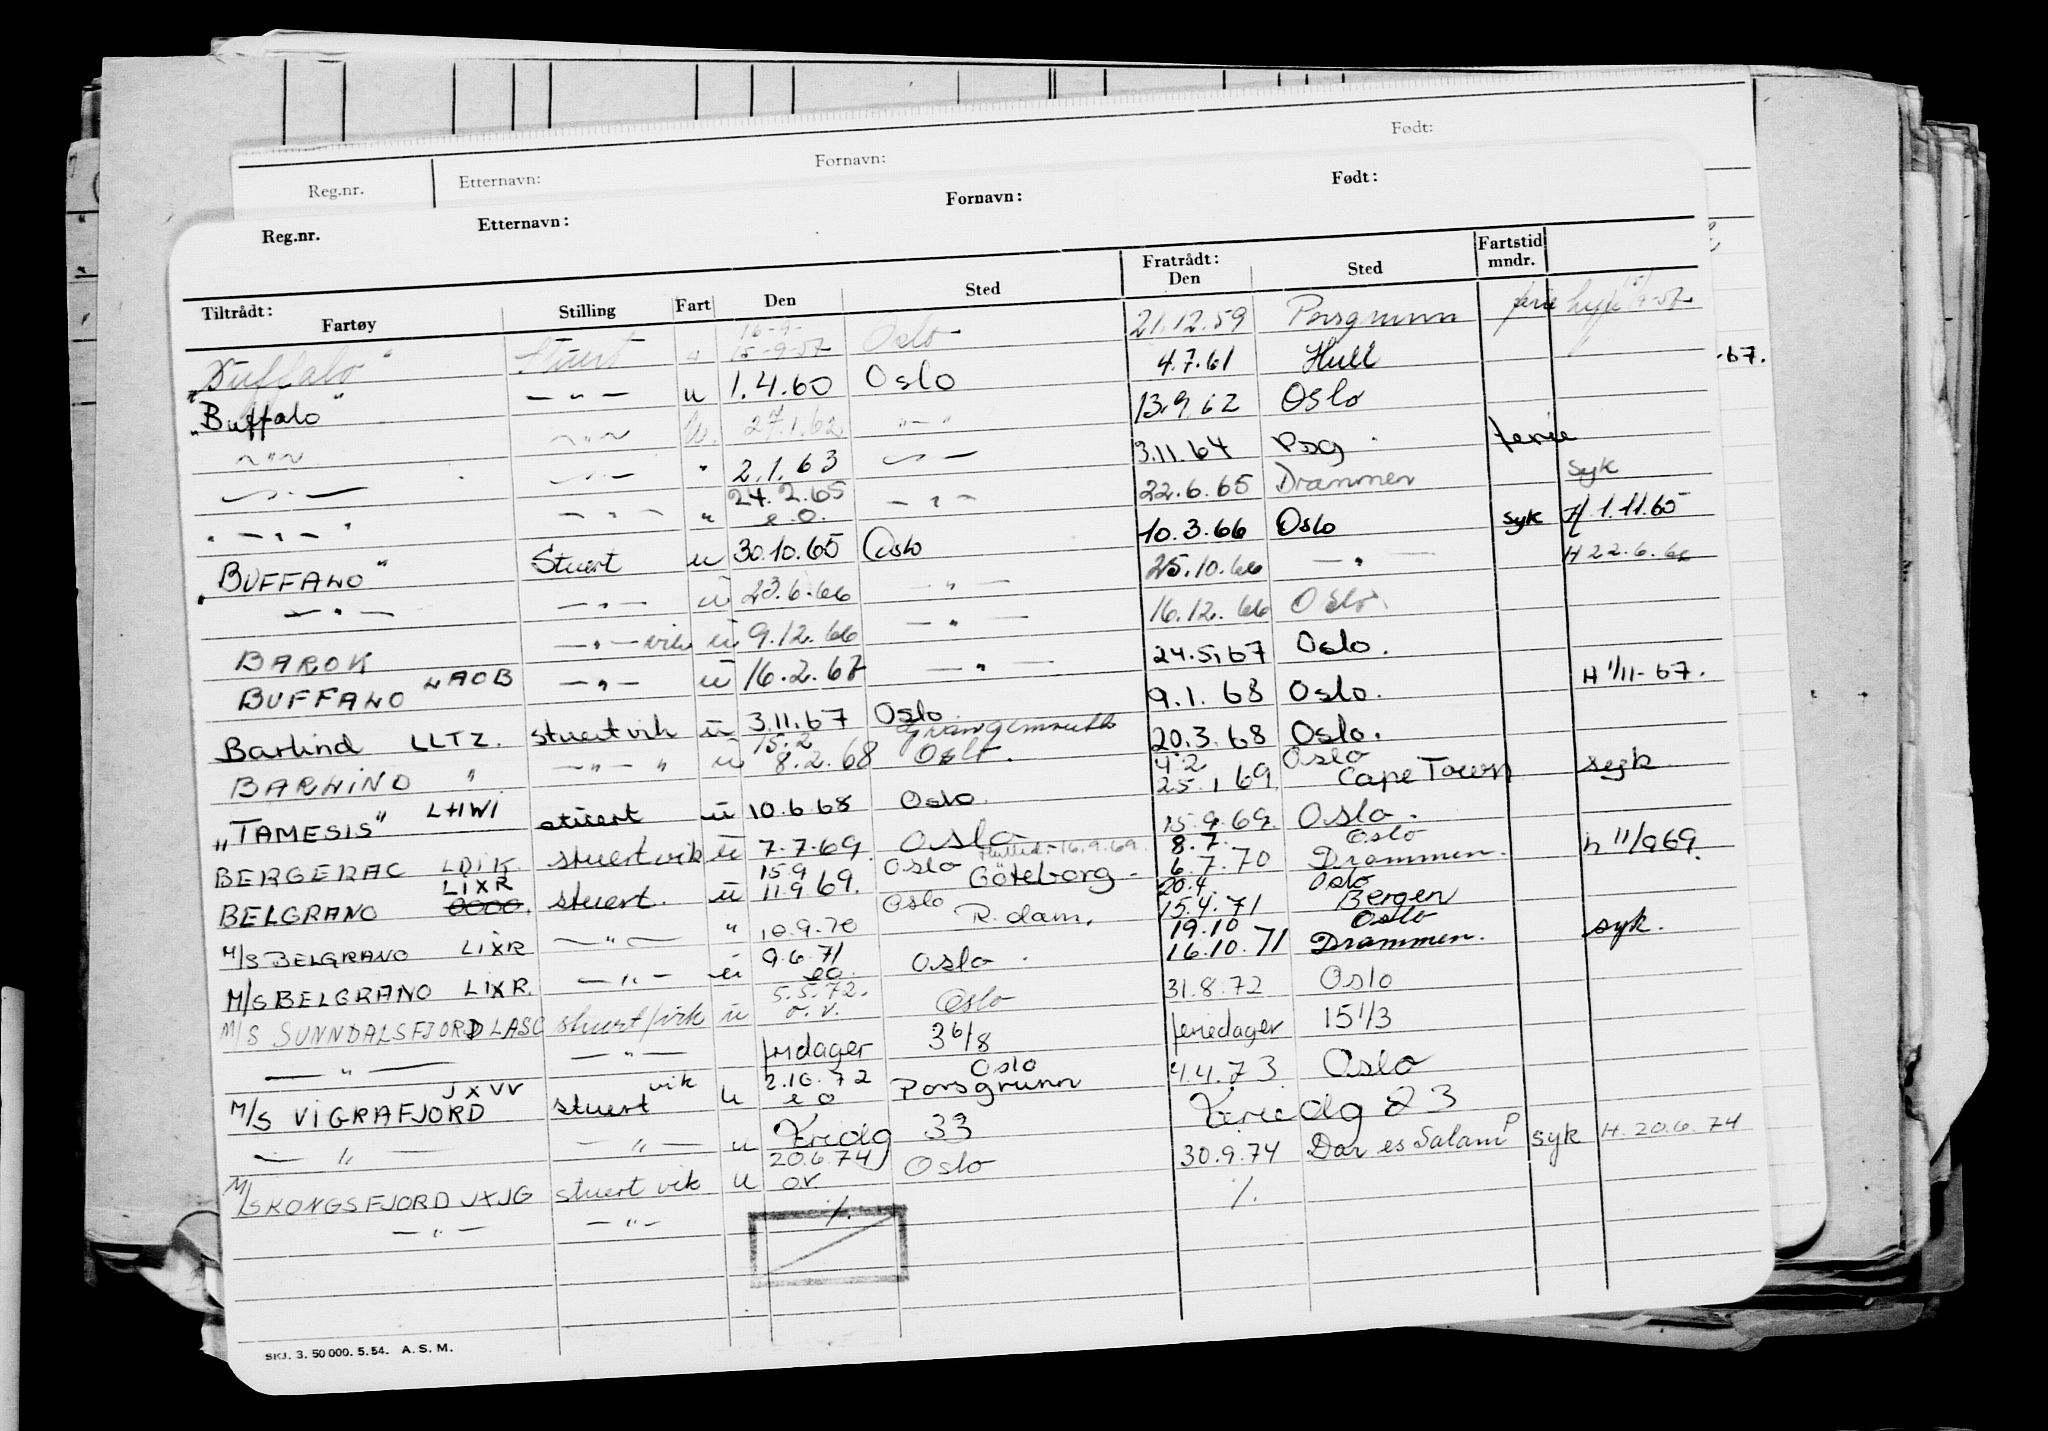 Født:
Fornavn:
Reg.nr. Etternavn:
Født:
Fornavn:
Etternavn:
Reg.nr.
Tiltrådt: Fartøy Stilling Fart Den Sted Fratrådt: Den Sted Fartstid mndr.
16-9-
"Buffalo" Stuert u 15-9-57 Oslo 21.12.59 Porsgrunn ferie
"Buffalo" — " — u 1.4.60 Oslo 4.7.61 Hull
-67.
~ " ~ ~ " ~ u. 27.1.62 " — " 13.9.62 Oslo
— " — — " — " 2.1.63 — " — 3.11.64 Psg. ferie
— " — — " — " 24.2.65 e.o. — " — 22.6.65 Drammen syk
"BUFFALO" Stuert u 30.10.65 Oslo 10.3.66 Oslo syk H 1.11.65
— " — — " — ü 23.6.66 — " — 25.10.66 — " H 22.6.66
BAROK — " — vik ü 9.12.66 — " — 16.12.66 Oslo
BUFFALO LAOB — " — ü 16.2.67 — " — 24.5.67 Oslo.
Barlind LLTZ. stuert vik ü 3.11.67 Oslo. 9.1.68 Oslo. H 1/11-67.
15.2
BARLIND " — " — " ü 8.2.68 Oslo. 20.3.68 Oslo.
4.2 Oslo
"TAMESIS" LHWI stuert ü 10.6.68 Oslo. 25.1.69 Cape Town syk
BERGERAC LDIK. stuert vik ü 7.7.69 Oslo 15.9.69. Oslo.
LIXR 15.9 Oslo 16.9.69. 8.7. Oslo
BELGRANO 0000. stuert. ü 11.9.69. Göteborg - 6.7.70 Drammen. h 11/9 69.
Oslo 20.4. Oslo
M/S BELGRANO LIXR — " — " 10.9.70 R.dam. 15.4.71 Bergen
9.6.71 19.10 Oslo
M/S BELGRANO LIXR. — " — ü eo. Oslo. 16.10.71 Drammen. syk.
5.5.72.
M/S SUNNDALSFJORD LASC stuert/vik ü o.v. Oslo 31.8.72 Oslo
— " — — " — fridager 36/8 feriedager 15 1/3
JXVV vik 2.10.72 Oslo
M/S VIGRAFJORD stuert u eo Porsgrunn 4.4.73 Oslo
— " — — " — u Fridg 33 Feriedg 23
20.6.74
M/S KONGSFJORD JXJG stuert vik u ov Oslo 30.9.74 Dar es Salam P syk H. 20.6.74
— " — — " — %. %.
SKJ. 3. 50 000. 5.54. A.S.M.